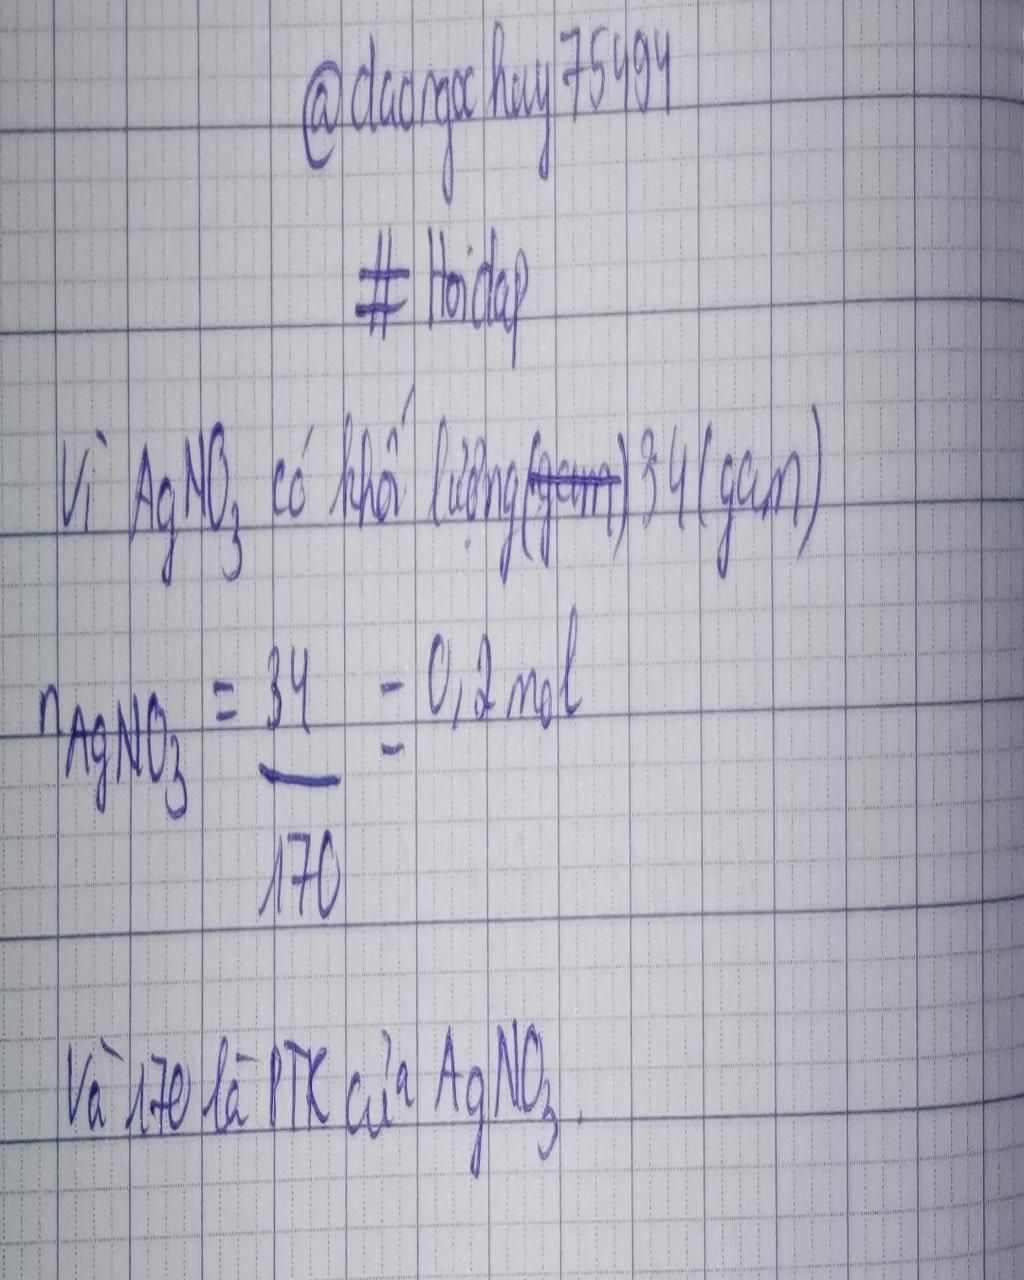 @daongochuy75494
# Hoidap
Vì AgNO3 có khối lượng (gam) 34 (gam)
nAgNO3 = 34 = 0,2 mol
170
Và 170 là PTK của AgNO3.